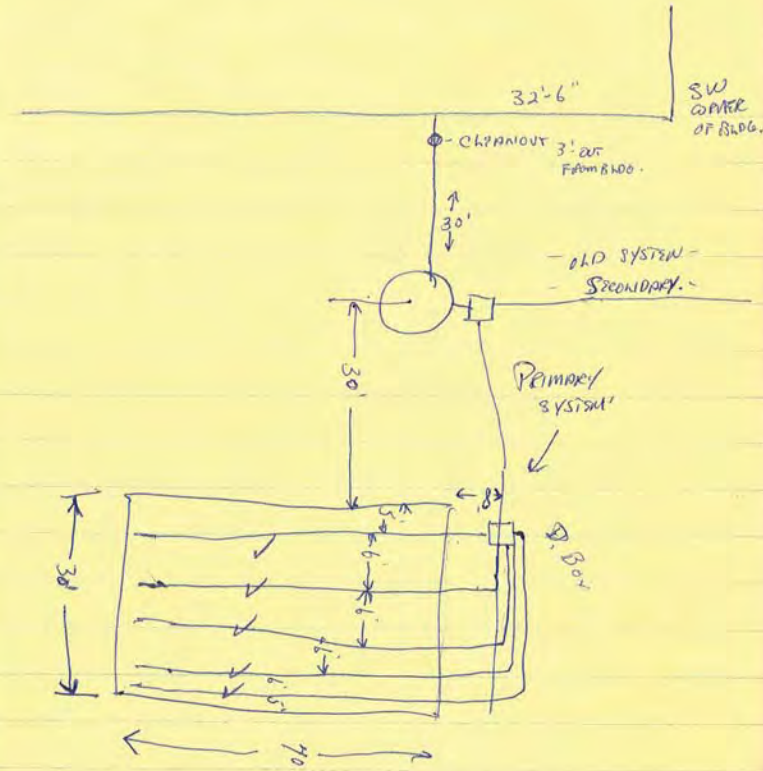 32'-6"
SW
CORNER
OF BLDG.
- CLEANOUT 3' OUT
FROM BLDG.
30'
- OLD SYSTEM -
- SECONDARY. -
30'
PRIMARY
SYSTEM
8'
5'
D. BOX
6'
6'
30'
6'
6'
5'
40